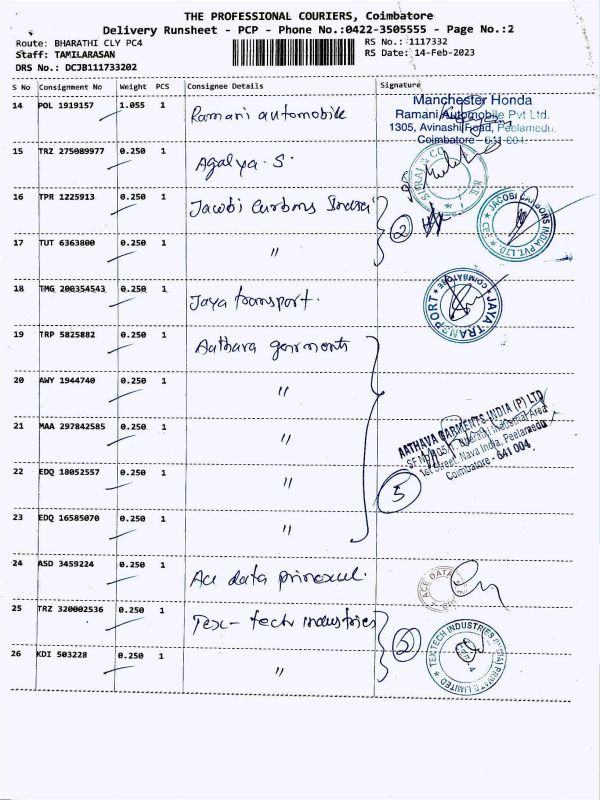 THE PROFESSIONAL COURIERS, Coimbatore
Delivery Runsheet - PCP - Phone No.:0422-3505555 - Page No.:2
Route: BHARATHI CLY PC4
RS No.: 1117332
Staff: TAMILARASAN
RS Date: 14-Feb-2023
DRS No.: DCJB111733202
S No Consignment No Weight PCS Consignee Details Signature
14 POL 1919157 1.055 1 Ramani automobile
Manchester Honda
Ramani Automobile Pvt Ltd.
1305, Avinashi Road, Peelamedu
Coimbatore - 641 004.
15 TRZ 275089977 0.250 1 Agalya. S.
16 TPR 1225913 0.250 1 Jacobi Carbons India
2
JACOBI CARBONS INDIA PVT. LTD.
17 TUT 6363800 0.250 1 "
18 TMG 200354543 0.250 1 Jaya transport.
JAYA TRANSPORT
COIMBATORE
19 TRP 5825882 0.250 1 Aathava garments
20 AWY 1944740 0.250 1 "
21 MAA 297842585 0.250 1 "
AATHAVA GARMENTS INDIA (P) LTD
1st Street, Nava India, Peelamedu
Coimbatore - 641 004.
22 EDQ 18052557 0.250 1 "
5
23 EDQ 16585070 0.250 1 "
24 ASD 3459224 0.250 1 Ace data
ACE DATA
25 TRZ 320002536 0.250 1 Tex-tech industries
2
TEXTECH INDUSTRIES (INDIA) PRIVATE LIMITED
26 KDI 503228 0.250 1 "